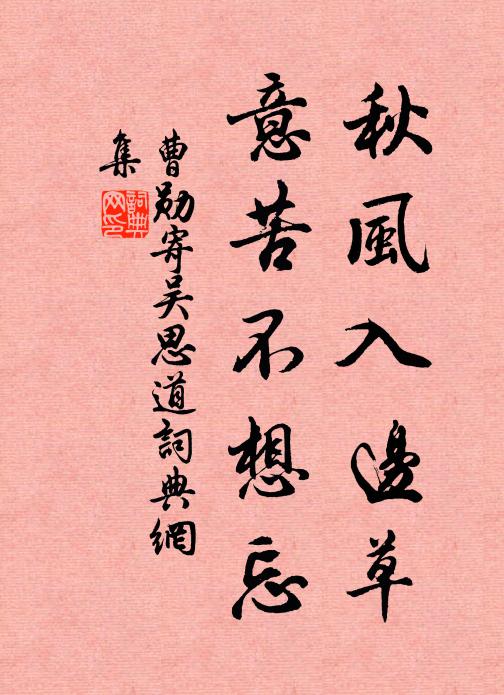 秋風入邊草
意苦不想忘
曹勛寄吴思道詞典網
集
詞典网印